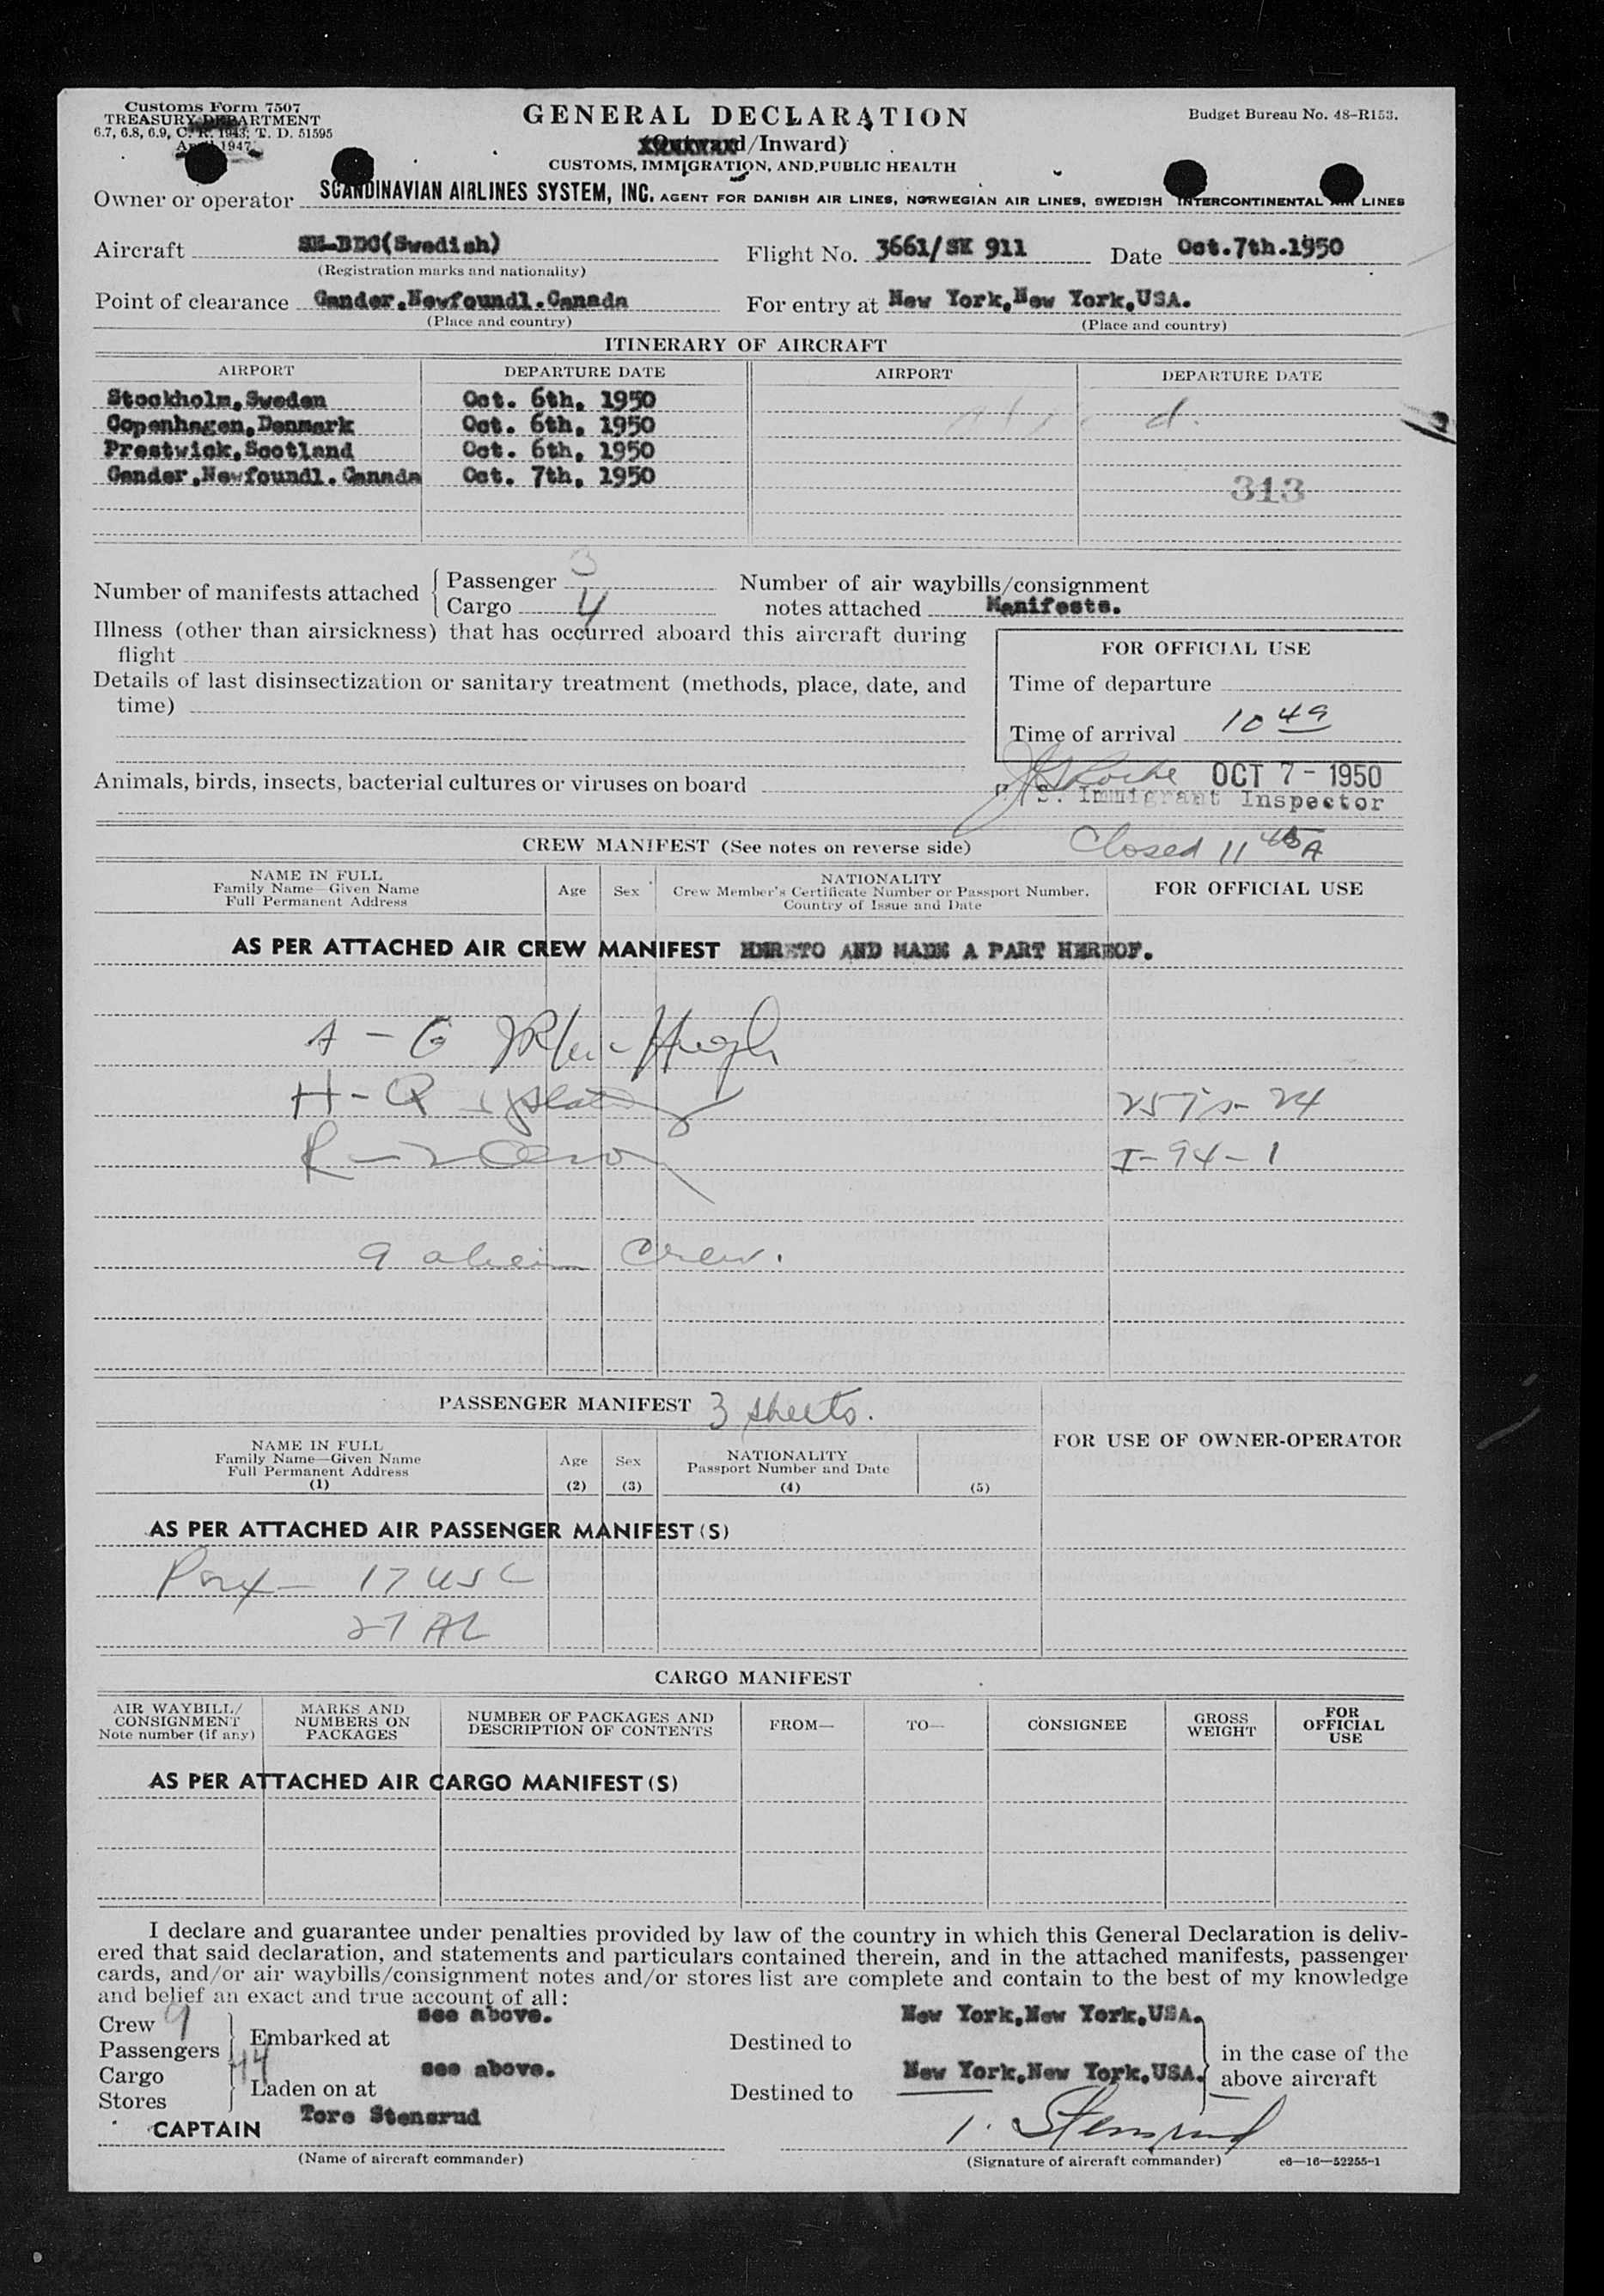 Customs Form 7507
TREASURY DEPARTMENT
6.7, 6.8, 6.9, C. R. 1943; T. D. 51595
April 1947
GENERAL DECLARATION
(Outward/Inward)
CUSTOMS, IMMIGRATION, AND PUBLIC HEALTH
Budget Bureau No. 48-R153.
Owner or operator SCANDINAVIAN AIRLINES SYSTEM, INC. AGENT FOR DANISH AIR LINES, NORWEGIAN AIR LINES, SWEDISH INTERCONTINENTAL AIR LINES
Aircraft SE-BDG(Swedish) Flight No. 3661/SK 911 Date Oct.7th.1950
(Registration marks and nationality)
Point of clearance Gander,Newfoundl.Canada For entry at New York,New York,USA.
(Place and country) (Place and country)
ITINERARY OF AIRCRAFT
AIRPORT DEPARTURE DATE AIRPORT DEPARTURE DATE
Stockholm,Sweden Oct. 6th, 1950
Copenhagen,Denmark Oct. 6th, 1950
Prestwick,Scotland Oct. 6th, 1950
Gander,Newfoundl.Canada Oct. 7th, 1950
313
Number of manifests attached { Passenger 3
Cargo 4
Number of air waybills/consignment
notes attached Manifests.
Illness (other than airsickness) that has occurred aboard this aircraft during
flight
Details of last disinsectization or sanitary treatment (methods, place, date, and
time)
FOR OFFICIAL USE
Time of departure
Time of arrival 10 49
Animals, birds, insects, bacterial cultures or viruses on board
OCT 7 - 1950
S. Immigrant Inspector
CREW MANIFEST (See notes on reverse side)
Closed 11 45 A
NAME IN FULL
Family Name—Given Name
Full Permanent Address
Age Sex
NATIONALITY
Crew Member's Certificate Number or Passport Number,
Country of Issue and Date
FOR OFFICIAL USE
AS PER ATTACHED AIR CREW MANIFEST HERETO AND MADE A PART HEREOF.
A - G
H - Q
R - Z
I-94-1
9 alien crew.
PASSENGER MANIFEST 3 sheets.
NAME IN FULL
Family Name—Given Name
Full Permanent Address
(1)
Age
(2)
Sex
(3)
NATIONALITY
Passport Number and Date
(4)
(5)
FOR USE OF OWNER-OPERATOR
AS PER ATTACHED AIR PASSENGER MANIFEST(S)
17 USC
27 AL
CARGO MANIFEST
AIR WAYBILL/
CONSIGNMENT
Note number (if any)
MARKS AND
NUMBERS ON
PACKAGES
NUMBER OF PACKAGES AND
DESCRIPTION OF CONTENTS
FROM—
TO—
CONSIGNEE
GROSS
WEIGHT
FOR
OFFICIAL
USE
AS PER ATTACHED AIR CARGO MANIFEST(S)
I declare and guarantee under penalties provided by law of the country in which this General Declaration is deliv-
ered that said declaration, and statements and particulars contained therein, and in the attached manifests, passenger
cards, and/or air waybills/consignment notes and/or stores list are complete and contain to the best of my knowledge
and belief an exact and true account of all:
Crew 9
Passengers 44
Cargo
Stores
Embarked at see above.
Laden on at see above.
Destined to New York,New York,USA.
Destined to New York,New York,USA.
in the case of the
above aircraft
CAPTAIN Tore Stensrud
T. Stensrud
(Name of aircraft commander)
(Signature of aircraft commander)
c6—16—52255-1